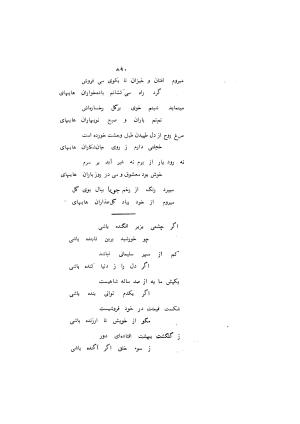 ۸۹۰
میروم افتان و خیزان تا بکوی می فروش
گرد راه می نشانم باده‌خواران هایهای
مینماید شبنم خوی برگل رخساره‌اش
تهتم یاران و صبح نوبهاران هایهای
مرغ روح از دل طپیدن طبل وحشت خورده است
حجاجتی دارم ز روی جان‌شکاران هایهای
نه رود یار از برم نه خبر آید بر سرم
خوش بود معشوق و می در روز باران هایهای
میپرد رنگ از رخم جویا ببال بوی گل
میروم از خود بیاد گل‌عذاران هایهای
اگر چشمی بزیر افکنده باشی
چو خورشید برین تابنده باشی
کم از سیر سلیمانی نباشد
اگر دل را ز دنیا کنده باشی
بکیش ما به از صد ساله شاهیست
اگر یکدم توانی بنده باشی
شکست قیمتت در خود فروشیست
مگو از خویش تا ارزنده باشی
ز گلگشت بهشت افتاده‌ای دور
ز سوء خلق اگر آکنده باشی